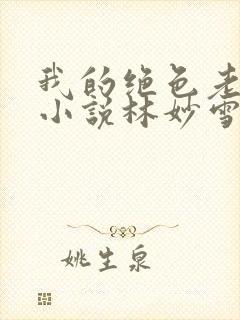 我的绝色老
小说林妙雪
姚生泉